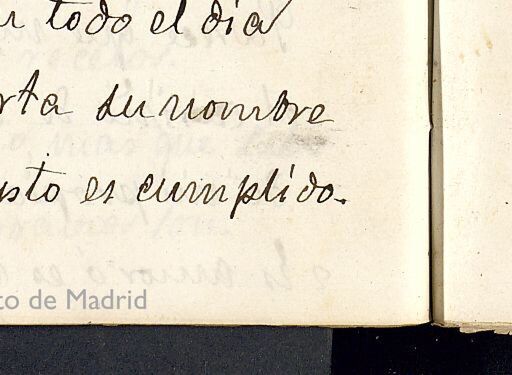 todo el dia
su nombre
es cumplido.
to de Madrid